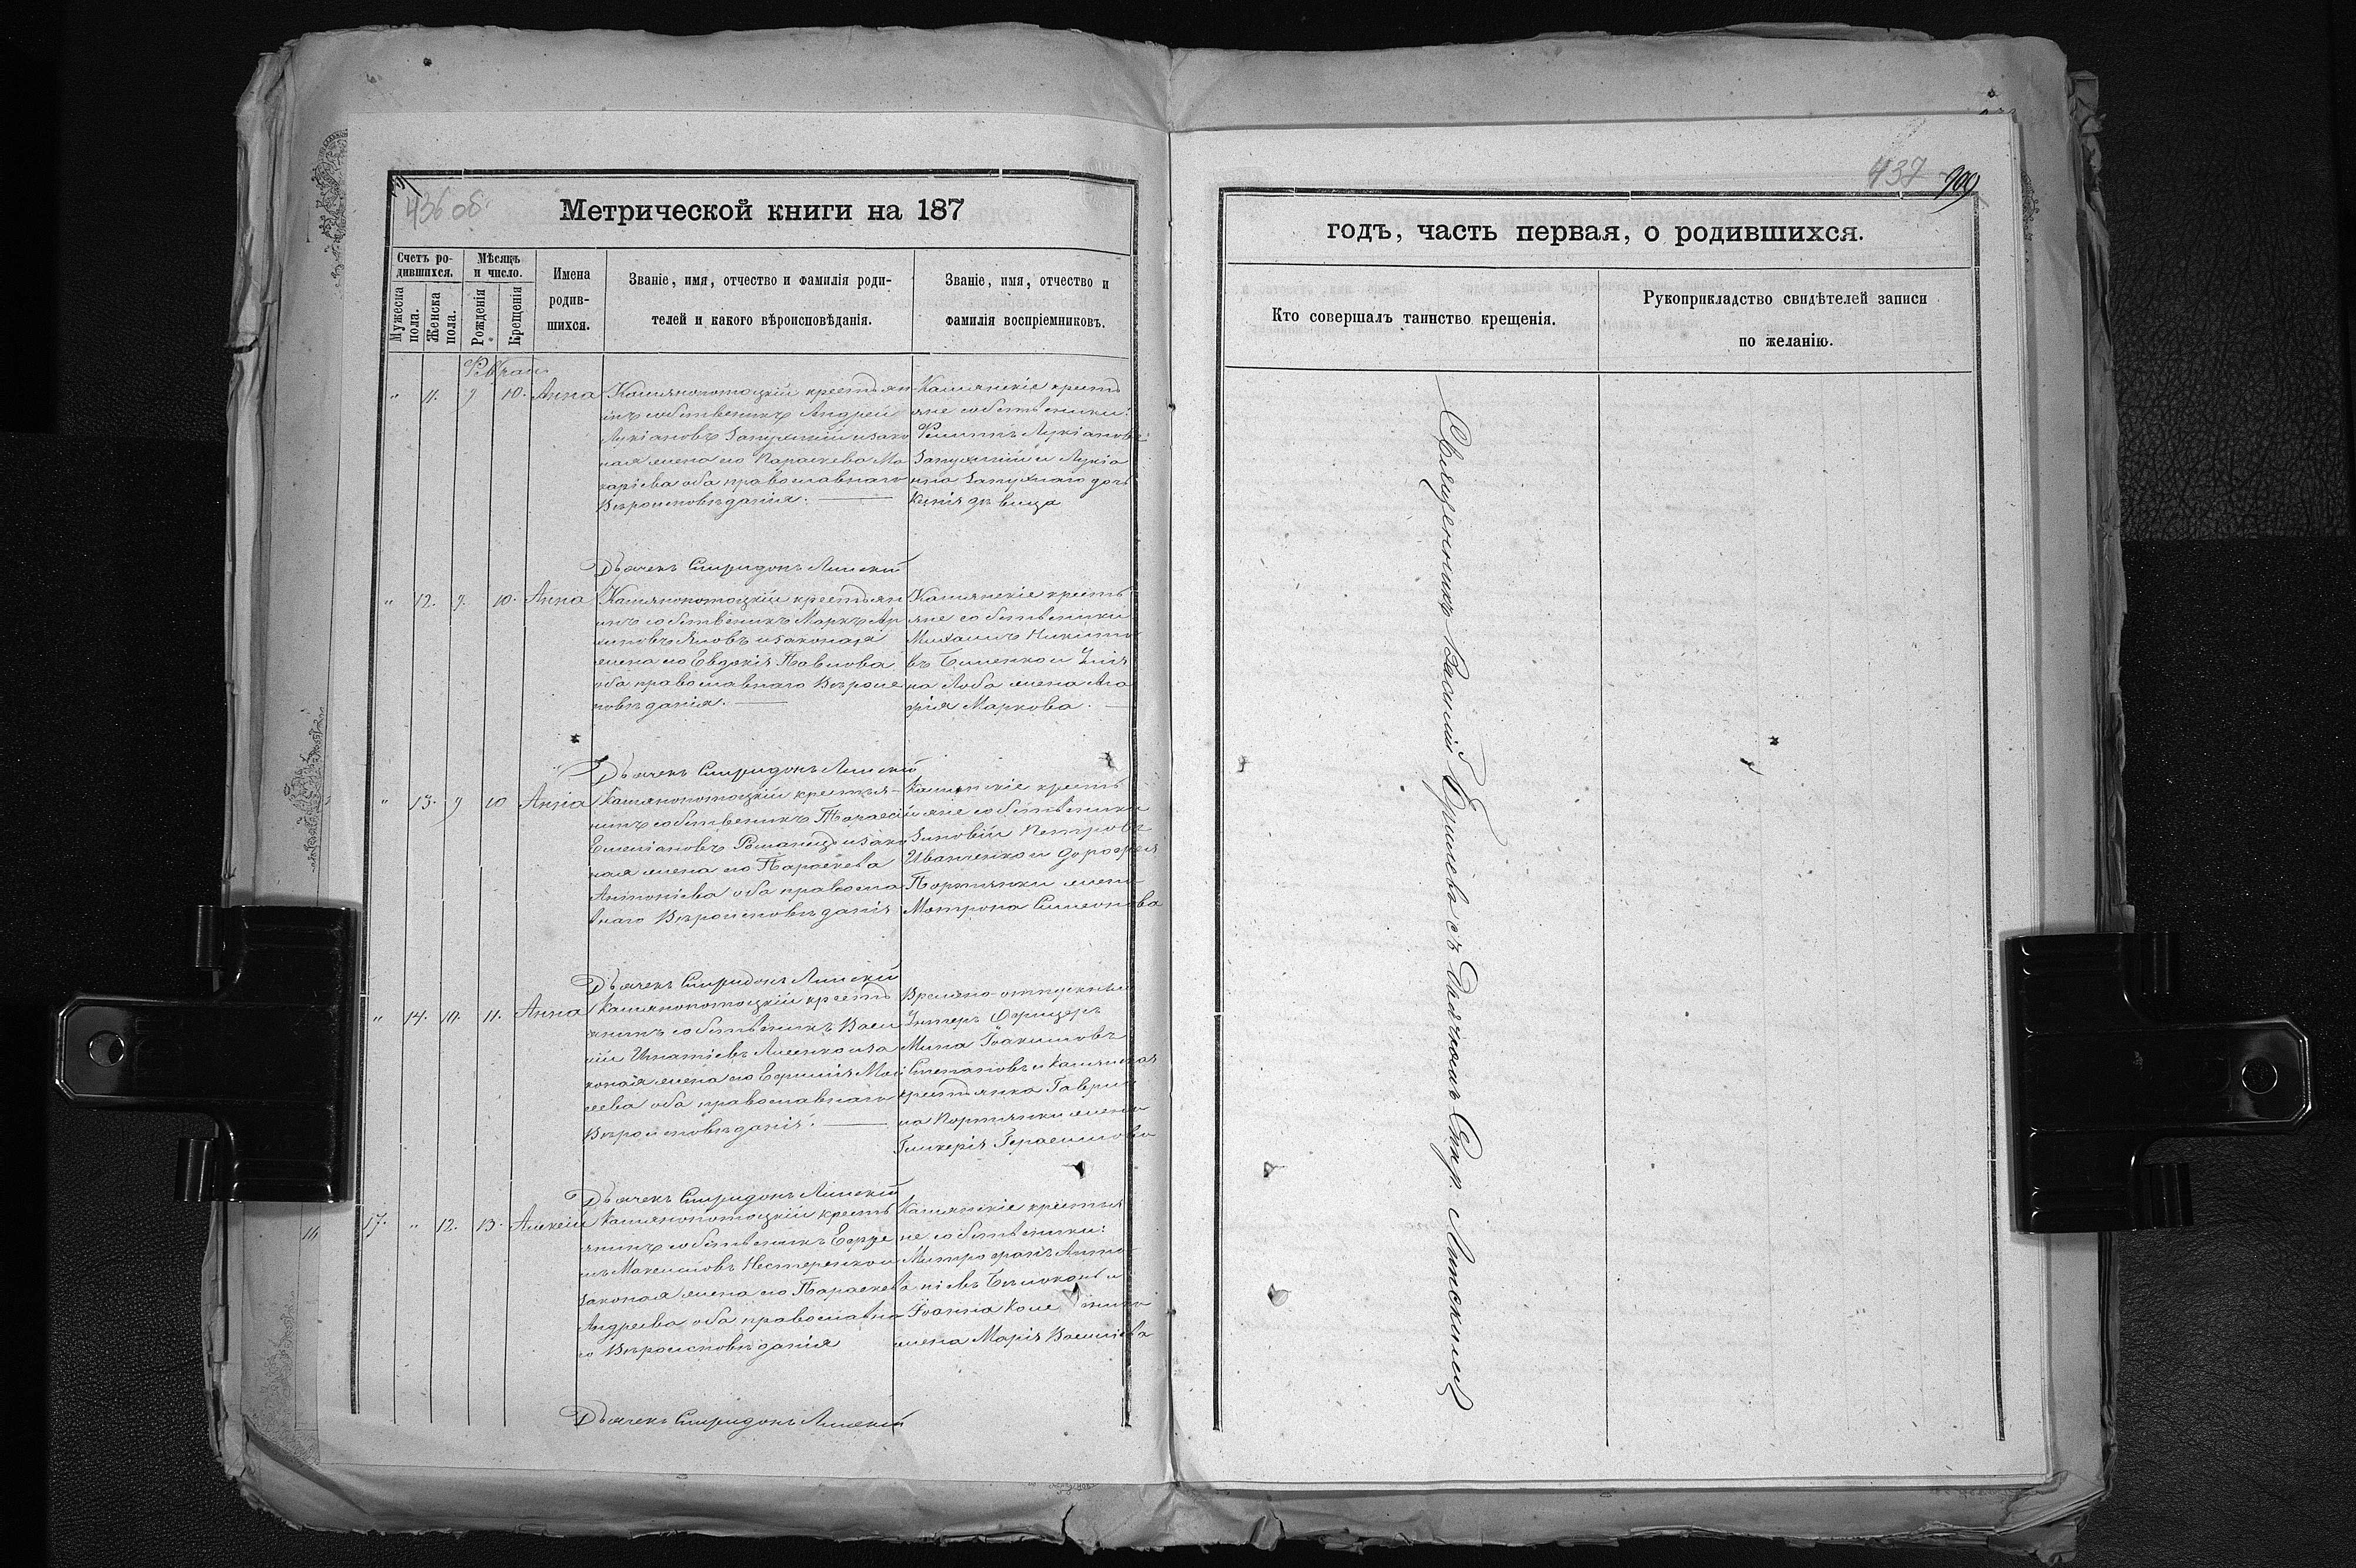 436 об.
Метрической книги на 187
Счетъ ро-
дившихся.
Мѣсяцъ
и число.
Мужеска
пола.
Женска
пола.
Рожденія
Крещенія
Имена
родив-
шихся.
Званіе, имя, отчество и фамилія роди-
телей и какого вѣроисповѣданія.
Званіе, имя, отчество и
фамилія воспріемниковъ.
" 11. 9 10. Анна
Камянопотоцкій крестьян
инъ собственикъ Андрей
Лукіановъ Запужній и зако
ная жена его Параскева Ма
каріева оба православнаго
Вѣроисповѣданія.
Камянскіе кресть
яне собственики:
Филипъ Лукіановъ
Запужній и Лукіа
на Запужнаго дочь
Ксенія дѣвица
Дьячекъ Спиридонъ Липскій
" 12. 9. 10. Анна
Камянопотоцкій крестьян
инъ собственикъ Маркъ Ар
хиповъ и законая
жена его Евдокія Павлова
оба православнаго Вѣроис
повѣданія.
Камянскіе кресть
яне собственики
Михаилъ Никито
въ и
на Лоба жена Ага
фія Маркова.
Дьячекъ Спиридонъ Липскій
" 13. 9 10 Анна
Камянопотоцкій крестья-
нинъ собственикъ Тарасій
Емеліановъ и зако
ная жена его Параскева
Антоніева оба правосла
внаго Вѣроисповѣданія
Камянскіе кресть
яне собственики
Зиновій Петровъ
Иванченко и Дорофея
Портянки жена
Матрона Симеонова
Дьячекъ Спиридонъ Липскій
" 14. 10. 11. Анна
Камянопотоцкій кресть
янинъ собственикъ Васи
лій Игнатіевъ и за
коная жена его Ефимія Мои
сеева оба православнаго
Вѣроисповѣданія.
Времяно-отпускный
Унтеръ Офицеръ
Мина Іоакимовъ
Степановъ и Камянская
крестьянка Гаврии
ла Портянки жена
Гликерія Герасимова
Дьячекъ Спиридонъ Липскій
16 17. " 12. 13. Алексій
Камянопотоцкій кресть
янинъ собственикъ Ефре
мъ Максимовъ Нестеренко и
законая жена его Параскева
Андреева оба православна
го Вѣроисповѣданія
Камянскіе крестья
не собственики:
Митрофанъ Анто
ніевъ Бѣлоконь и
Іоанна
жена Марія Василіева
Дьячекъ Спиридонъ Липскій
437
годъ, часть первая, о родившихся.
Кто совершалъ таинство крещенія.
Рукоприкладство свидѣтелей записи
по желанію.
Священникъ Василій съ Дьячкомъ Спир. Липскимъ